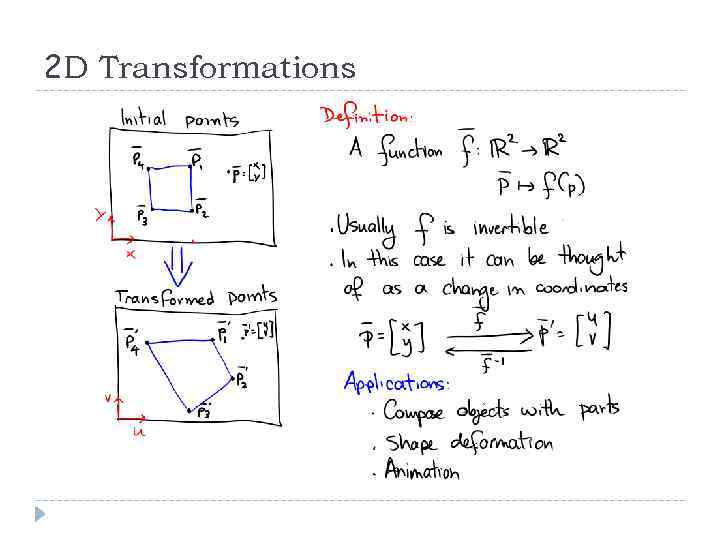 2D Transformations
Initial points
P̄4 P̄1 • P̄=[x y]
P̄3 P̄2
y
x
Transformed points
P̄4' P̄1' • P̄'=[u v]
P̄2'
P̄3'
v
u
Definition:
A function f̄: ℝ² → ℝ²
P̄ ↦ f(p)
. Usually f is invertible
. In this case it can be thought
of as a change in coordinates
P̄ = [x y] f̄ f̄⁻¹ P̄' = [u v]
Applications:
. Compose objects with parts
. Shape deformation
. Animation